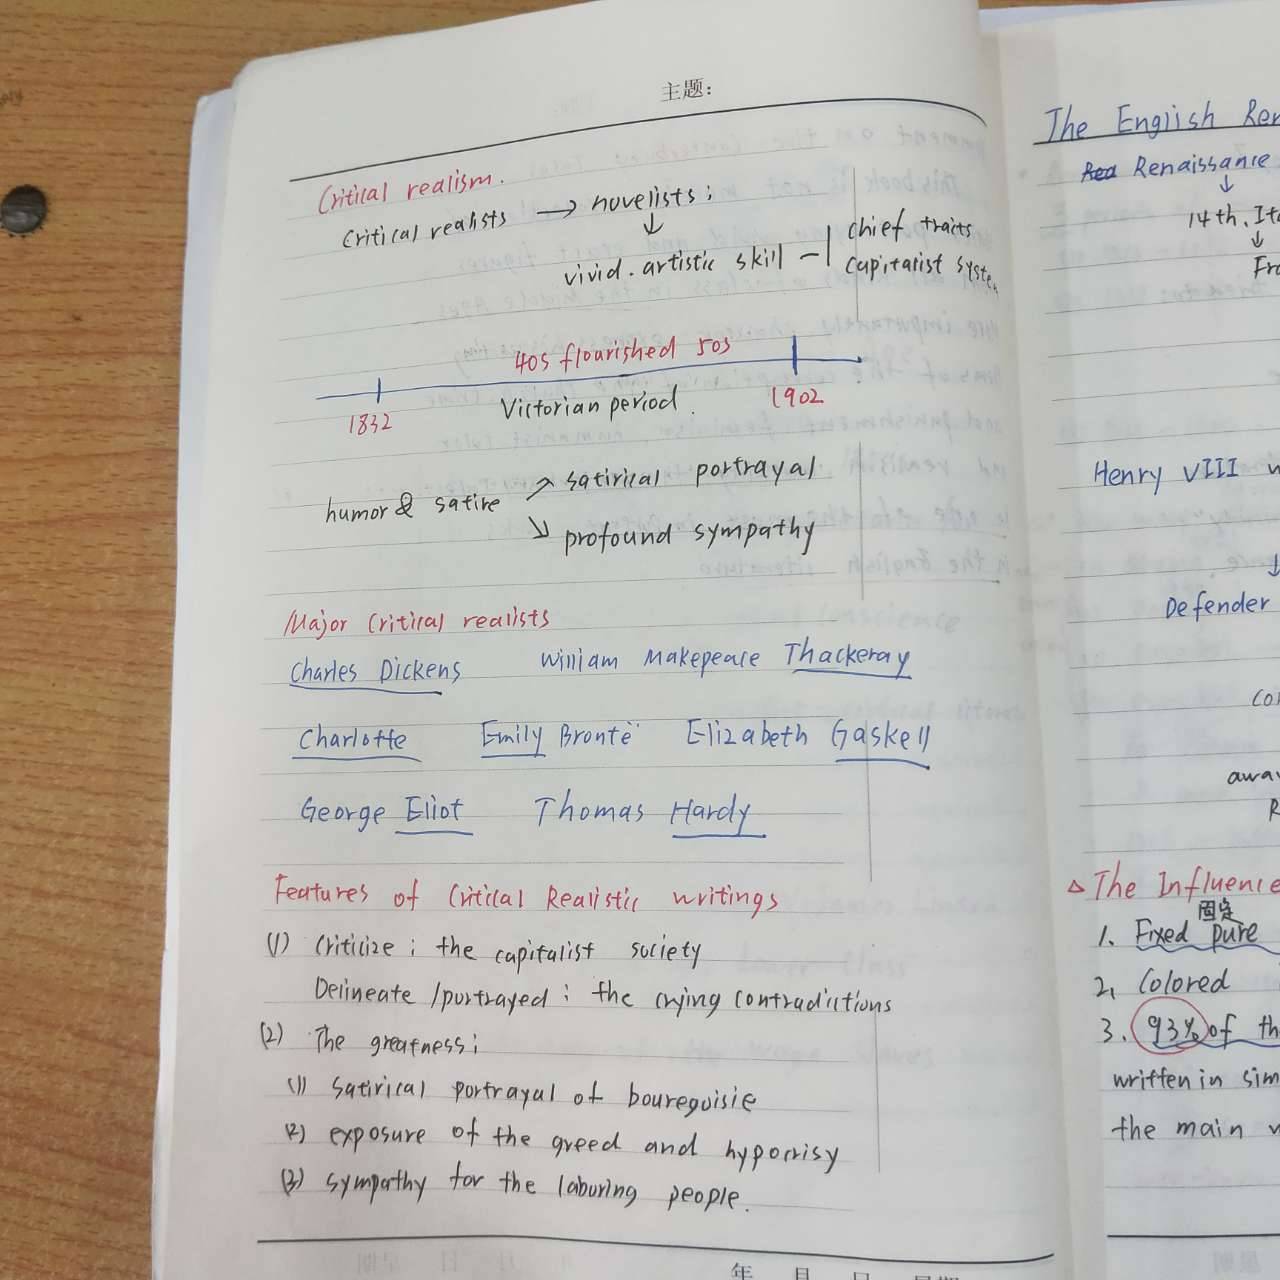 主题：
Critical realism.
Critical realists → novelists ;
↓
vivid. artistic skill — chief traits
capitalist system
40s flourished 50s
1832 Victorian period. 1902
humor & satire ↗ satirical portrayal
↘ profound sympathy
Major Critical realists
Charles Dickens William Makepeace Thackeray
Charlotte Emily Brontë Elizabeth Gaskell
George Eliot Thomas Hardy
Features of Critical Realistic writings
(1) Criticize ; the capitalist society
Delineate / portrayed : the crying contradictions
(2) The greatness ;
(1) satirical portrayal of boureguisie
(2) exposure of the greed and hypocrisy
(3) sympathy for the laburing people.
年 月 日 星期
The Engiish Ren
Renaissance
↓
14th. Ita
↓
Fra
Henry VIII w
↓
Defender
away
R
△ The Influence
固定
1. Fixed pure
2, Colored
3. 93% of th
written in sim
the main w